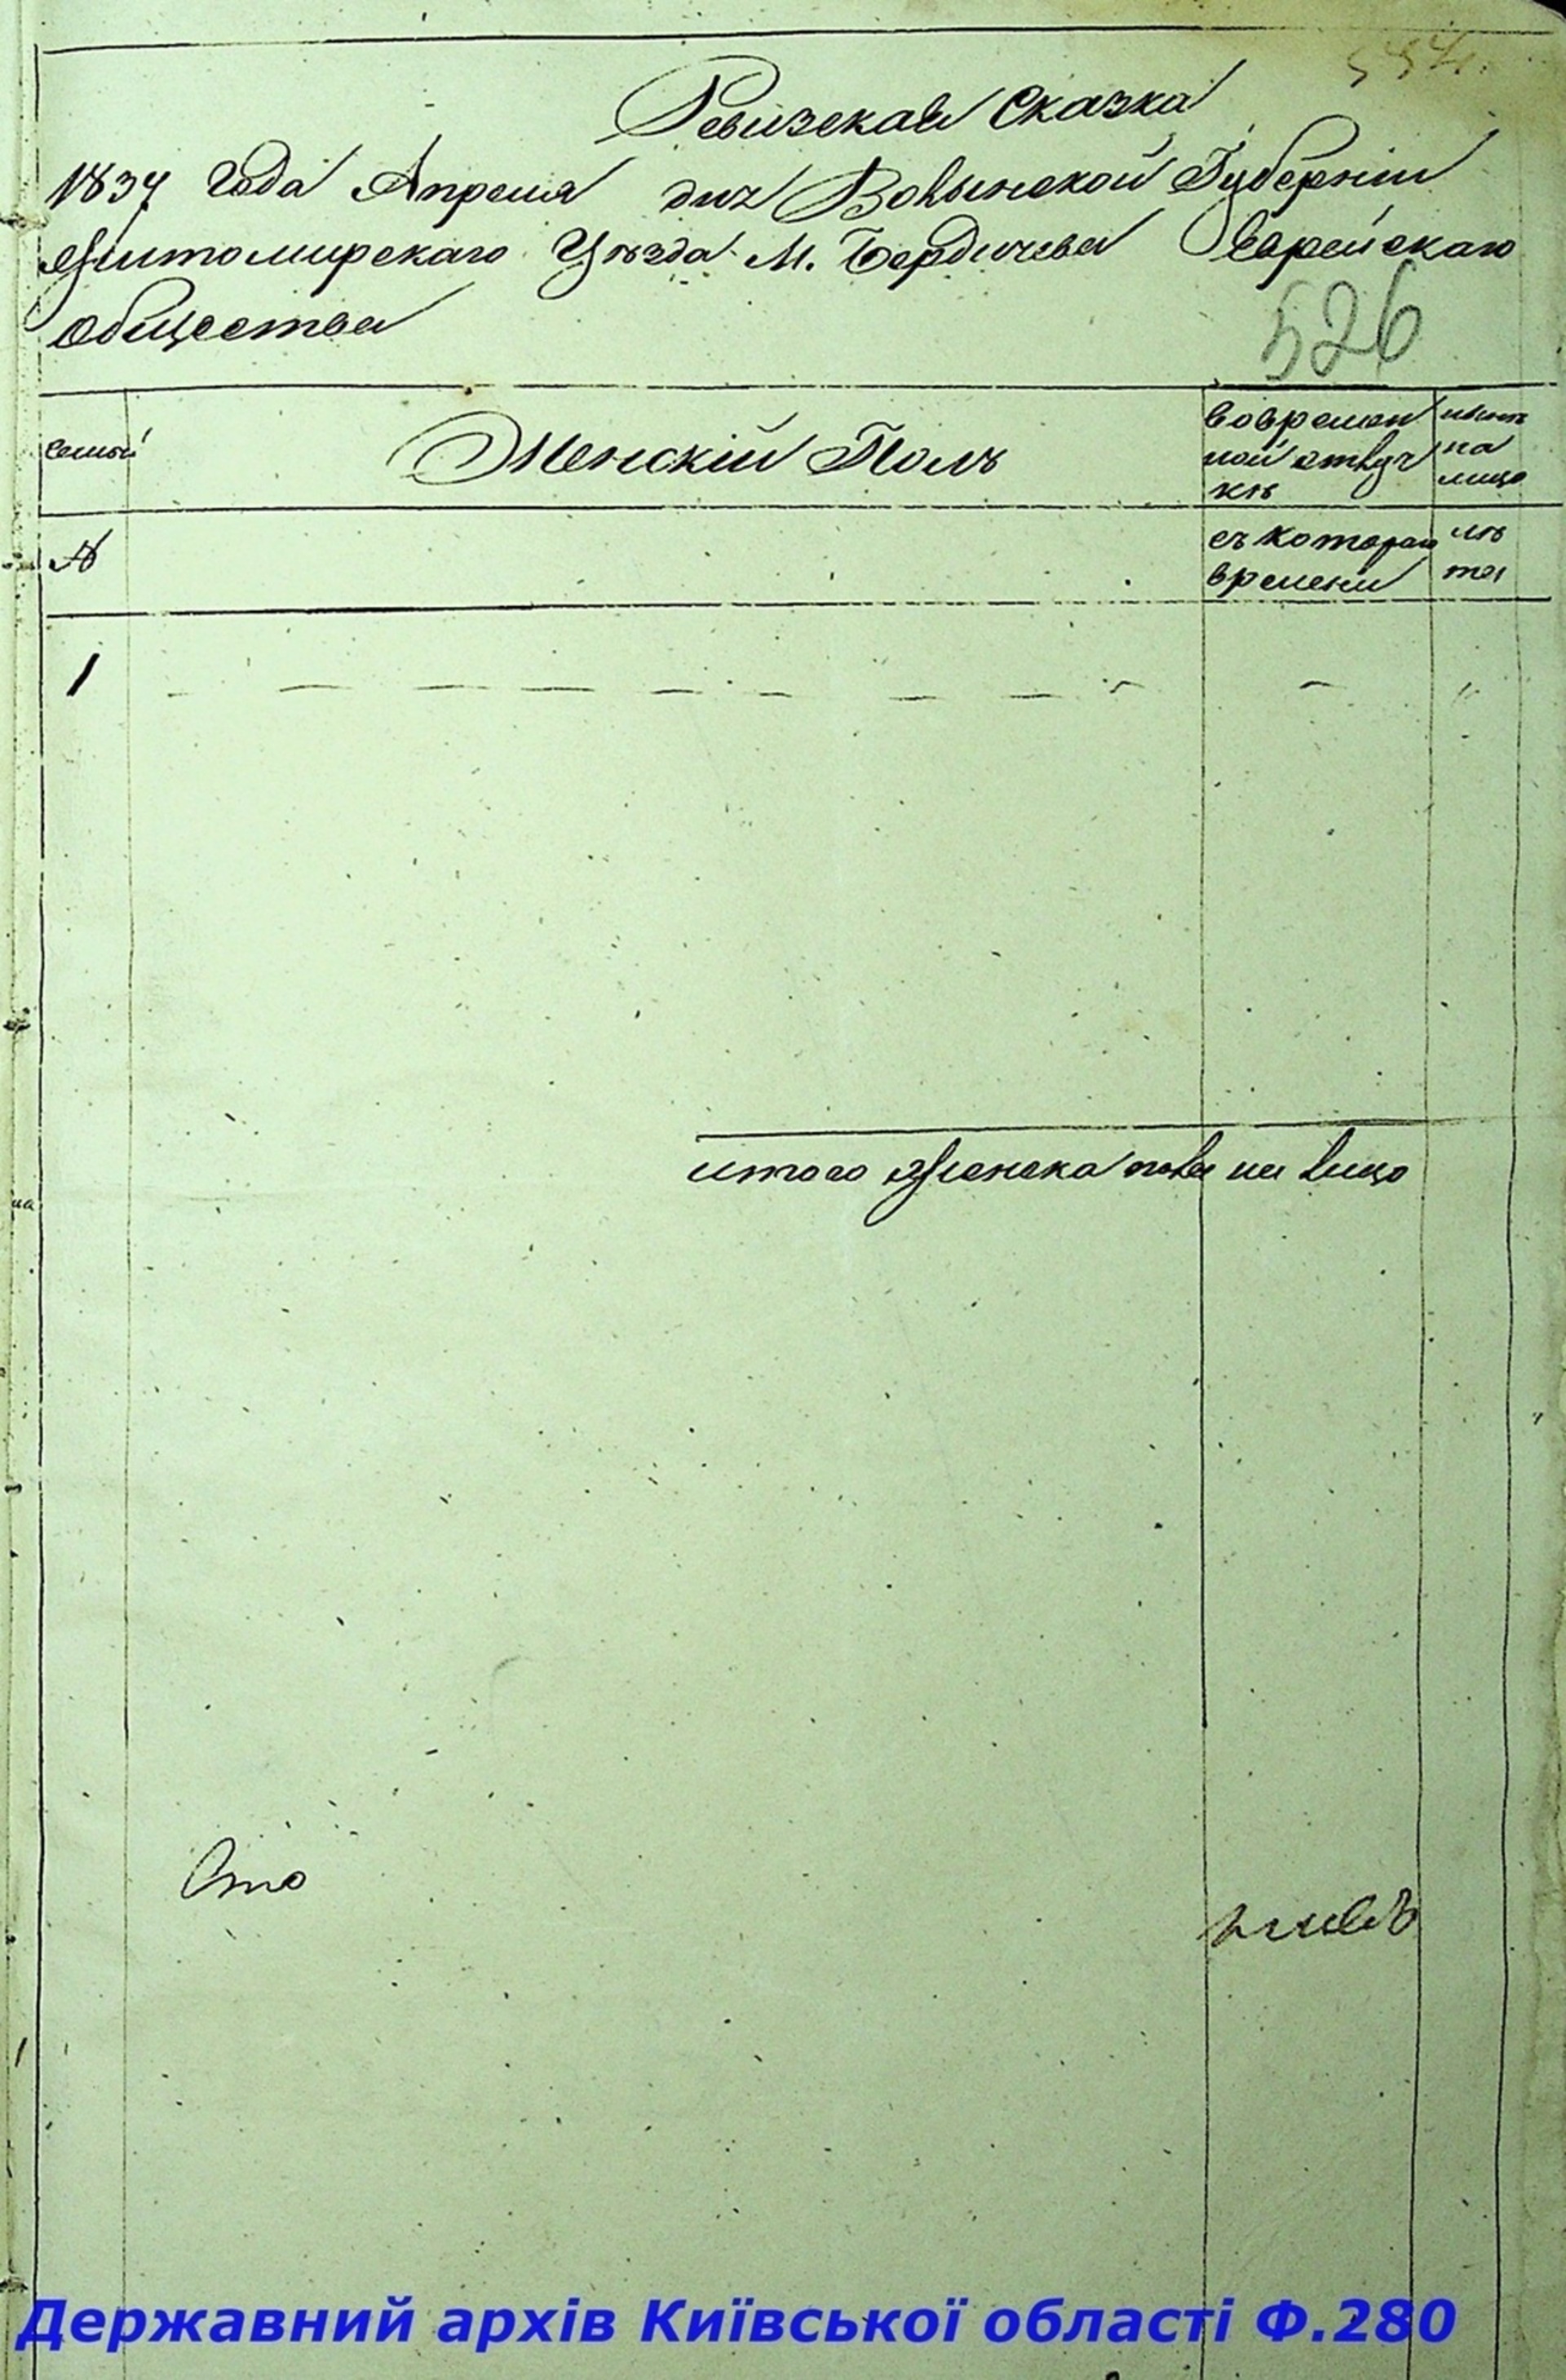 Ревизская Сказка
1834 года Апреля дня Волынской Губернiи
Житомирскаго Уѣзда М. Бердичева Еврейскаго
общества
526
семьи
Женскiй Полъ
вовремен
ной отлуч
кѣ
нынѣ
на
лицо
№
съ котораго
времени
лѣ
та
1
итого женска пола на лицо
Что
Державний архів Київської області Ф.280